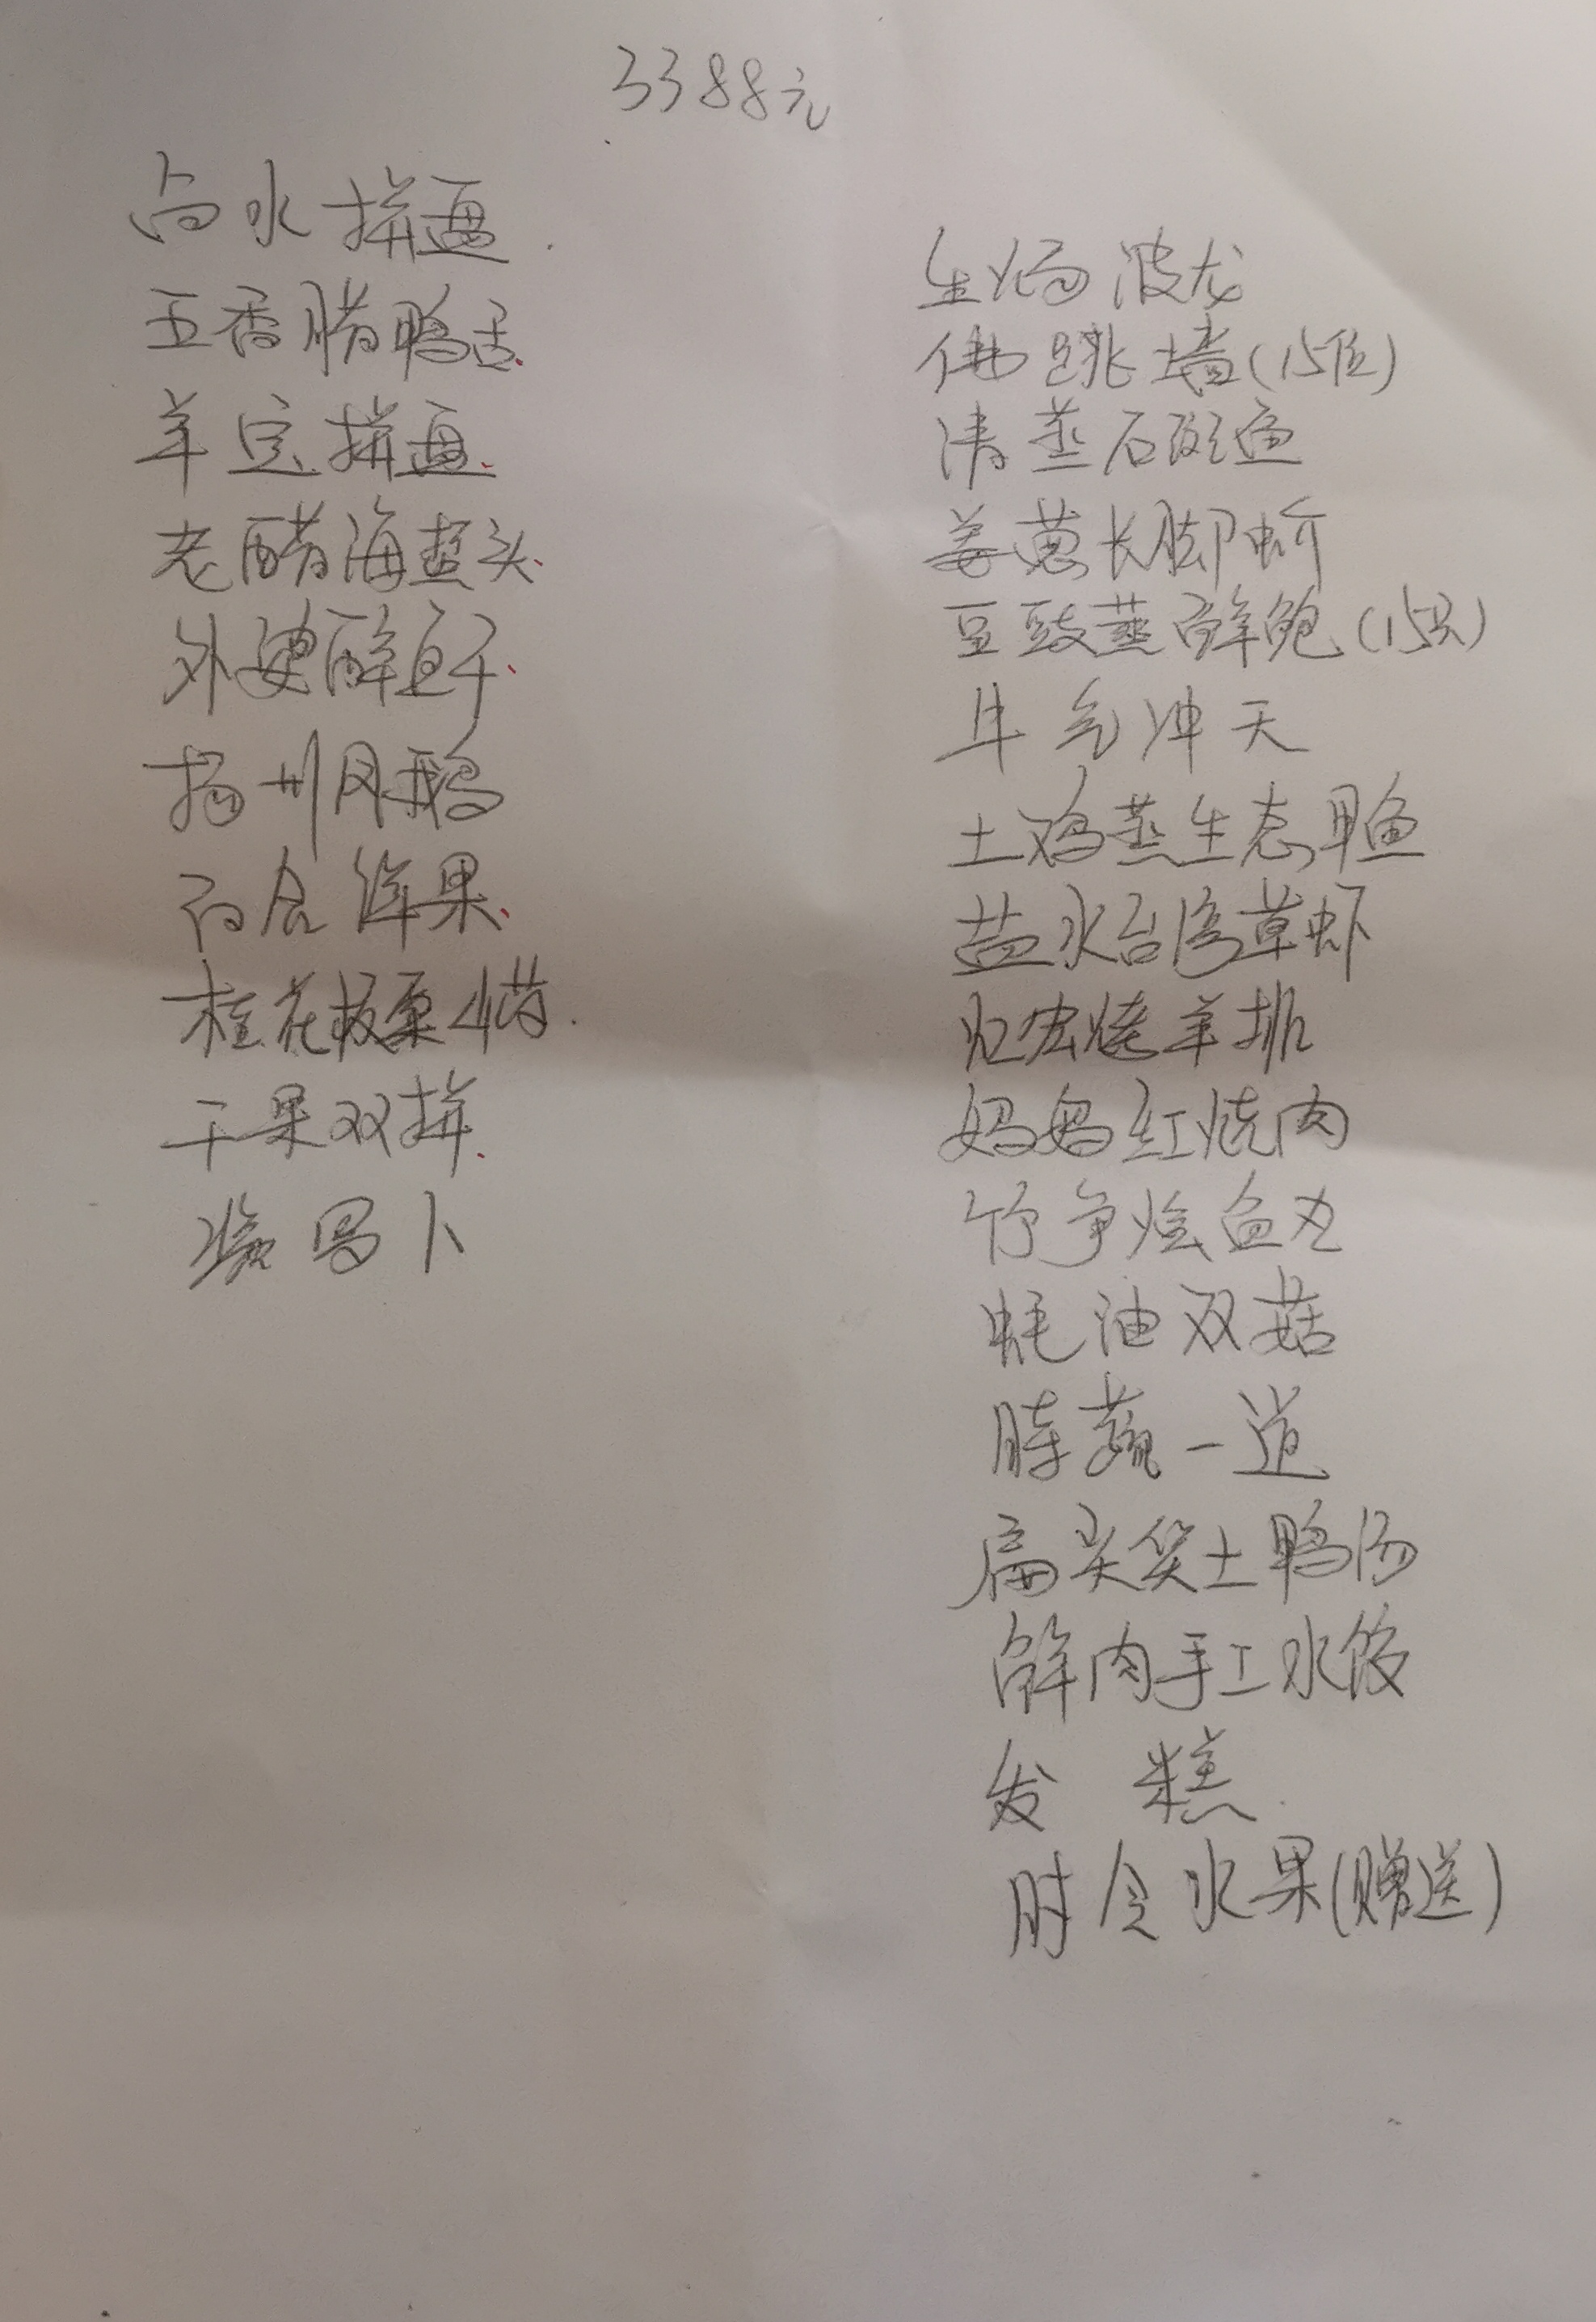 3388元
卤水拼盘
五香腊鸭舌
羊羔拼盘
老醋海蜇头
外婆醉鱼干
扬州风鹅
百合鲜果
桂花板栗小番
干果双拼
酱罗卜
生焗波龙
佛跳墙(15位)
清蒸石斑鱼
姜葱长脚蚧
豆豉蒸鲜鲍(15只)
牛气冲天
土鸡蒸生态甲鱼
盐水台湾草虾
烧羊排
妈妈红烧肉
竹笋烩鱼丸
蚝油双菇
时蔬一道
扁尖笋土鸭汤
鲜肉手工水饺
发糕
时令水果(赠送)